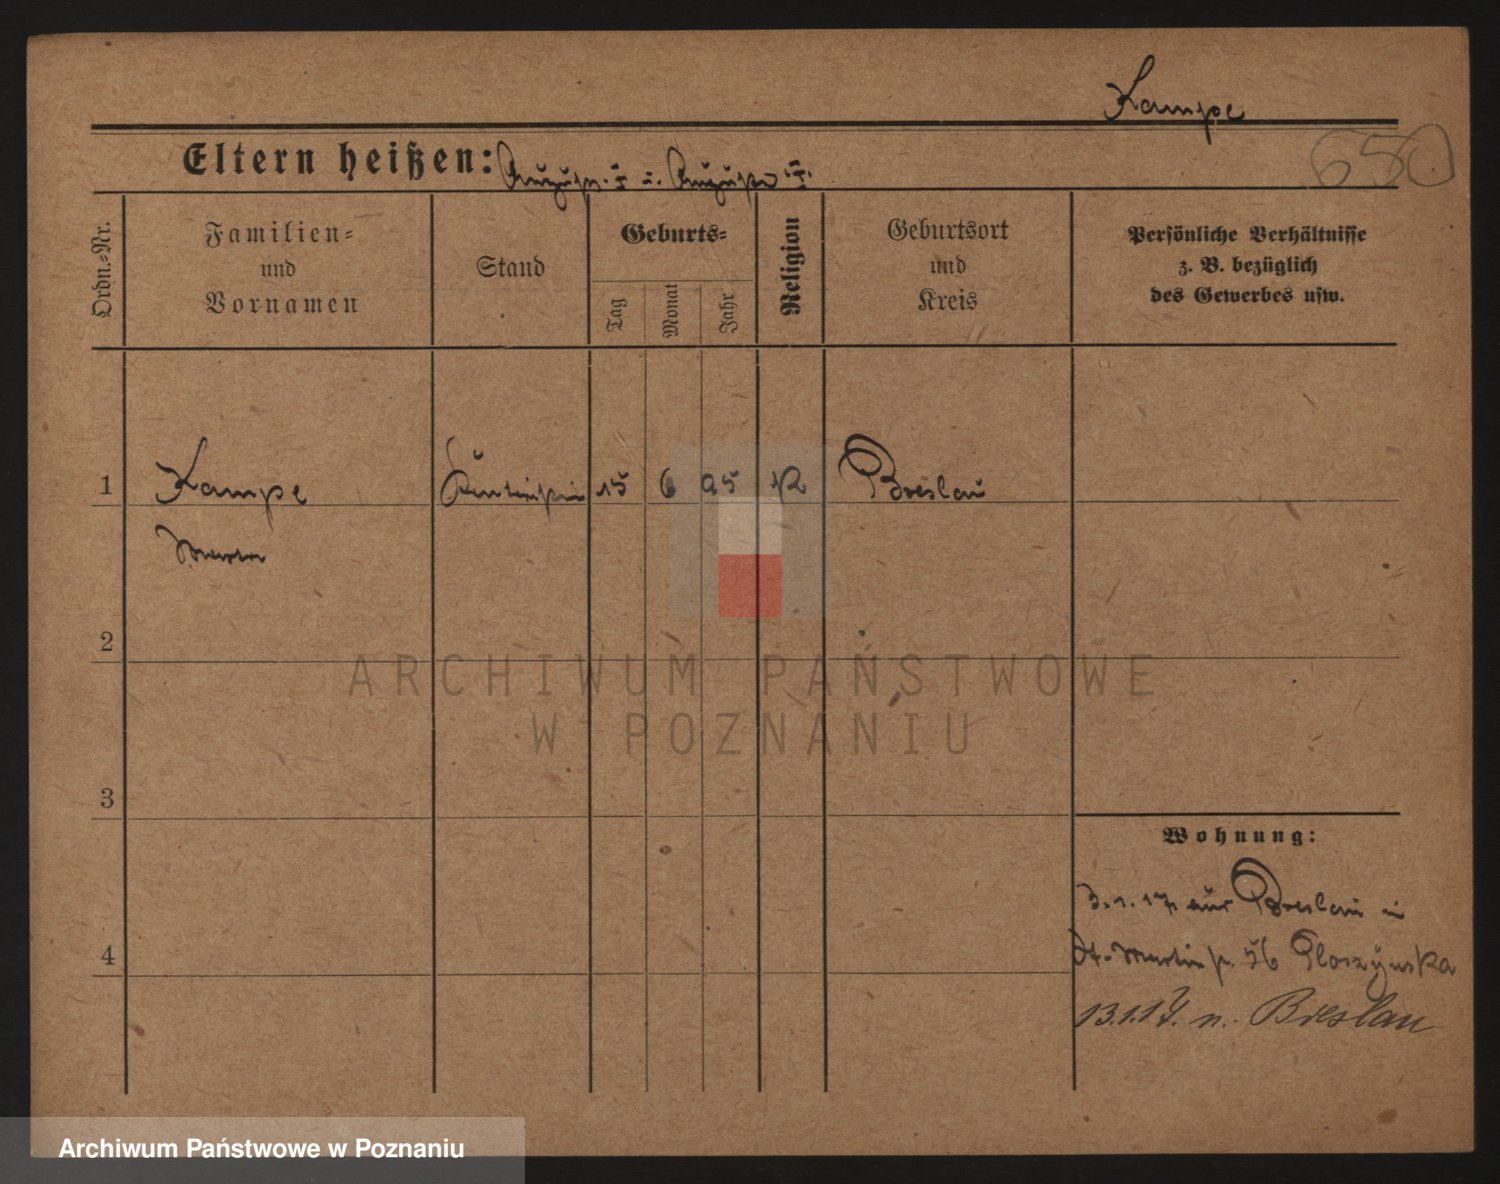 Kampe
650
Eltern heißen: August † u. Auguste †
Ordn.-Nr.
Familien=
und
Vornamen
Stand
Geburts=
Tag
Monat
Jahr
Religion
Geburtsort
und
Kreis
Persönliche Verhältnisse
z. B. bezüglich
des Gewerbes usw.
1 Kampe Künstlerin 15 6 95 K Breslau
2
3
4
Wohnung:
3.1.17 aus Breslau in
St. Martinstr. 56 Ploszynska
13.1.17. n. Breslau
ARCHIWUM PAŃSTWOWE
W POZNANIU
Archiwum Państwowe w Poznaniu